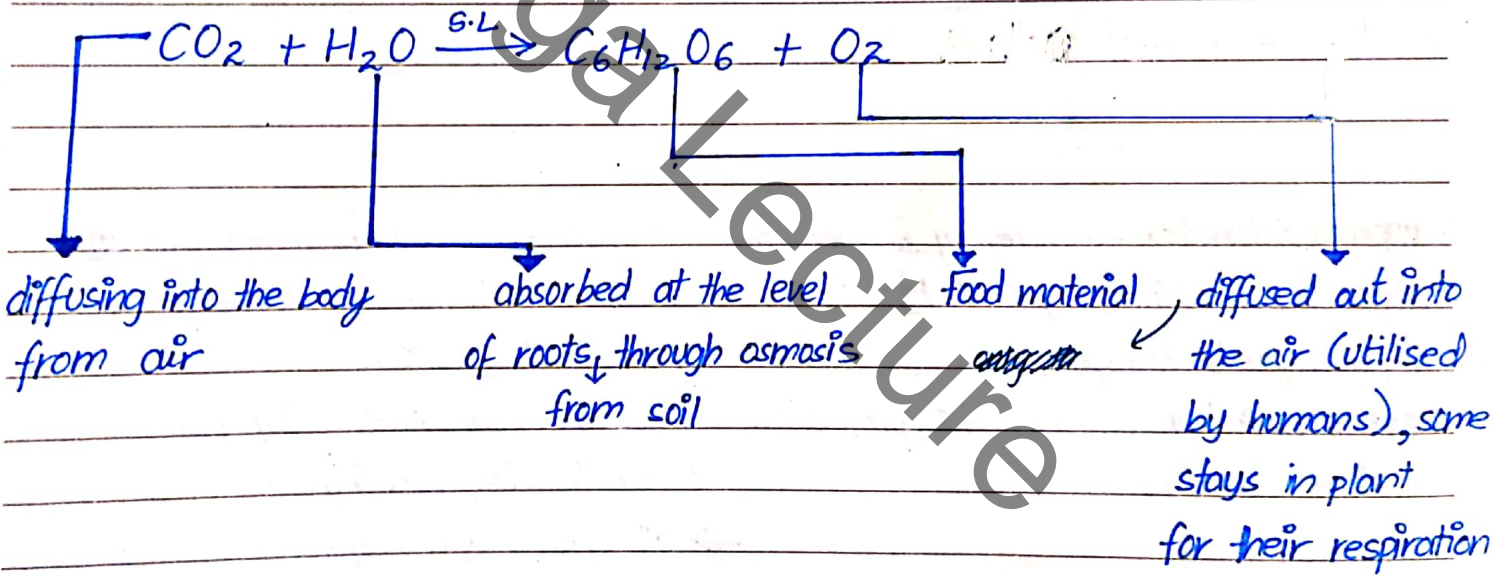 S.L
CO2 + H2O → C6H12O6 + O2
diffusing into the body
from air
absorbed at the level
of roots, through osmosis
from soil
food material
, diffused out into
the air (utilised
by humans), some
stays in plant
for their respiration
ga Lecture